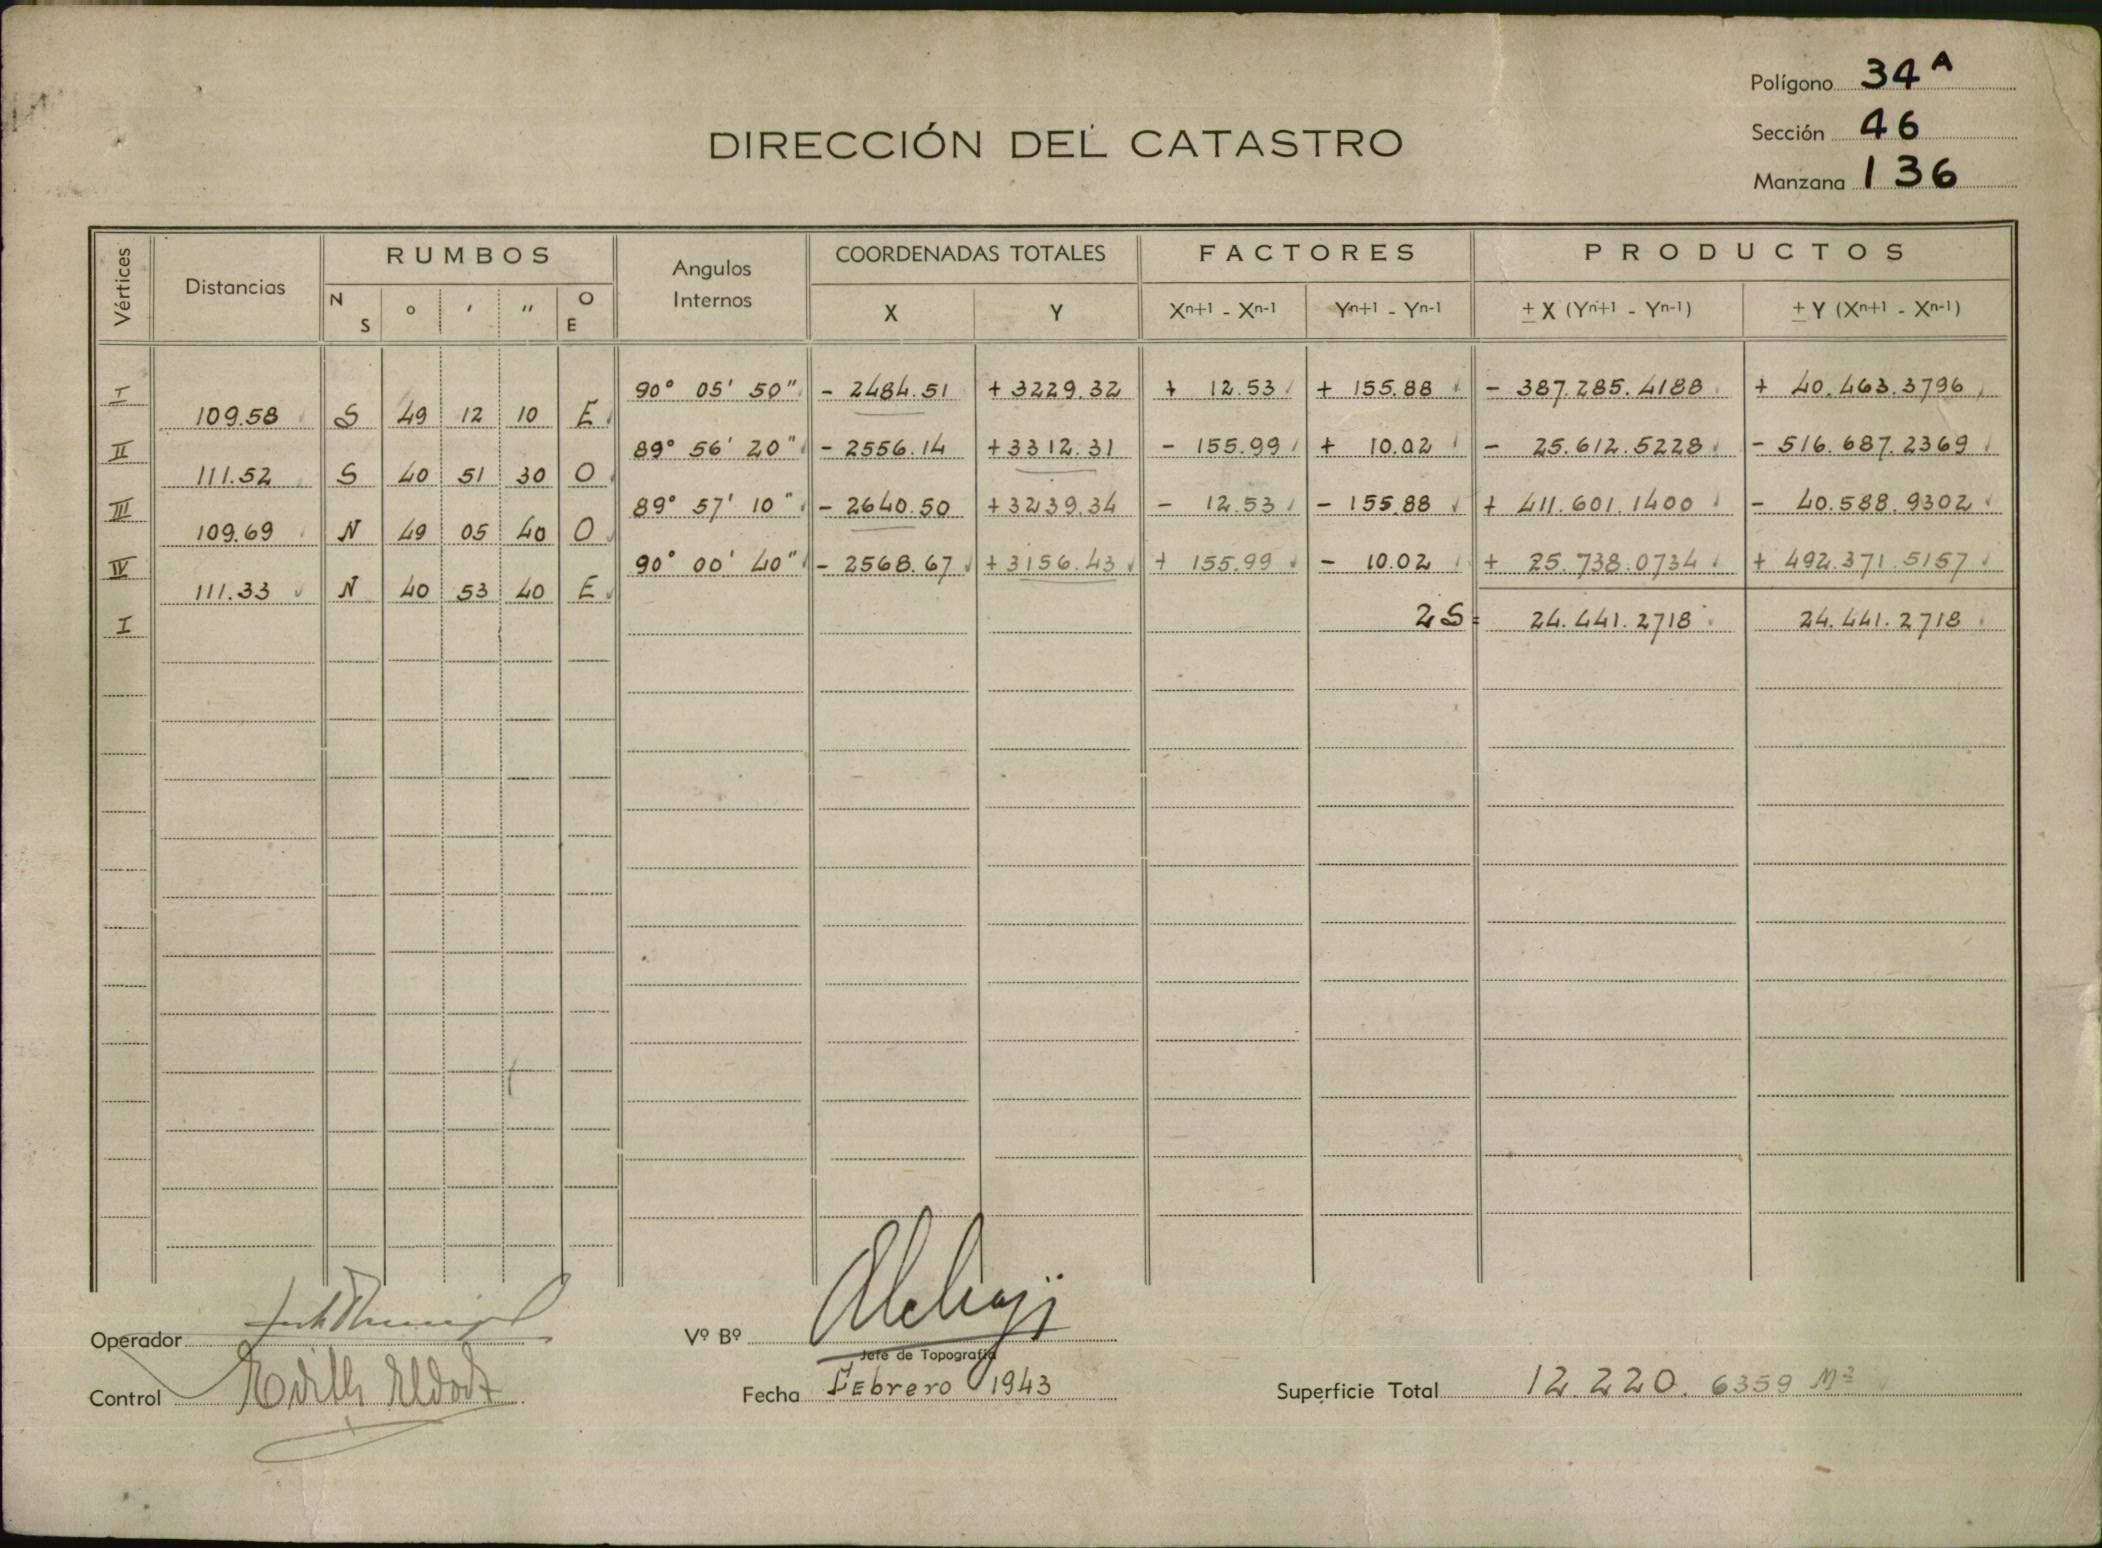 Polígono 34 A
Sección 46
Manzana 136
DIRECCIÓN DEL CATASTRO
Vértices Distancias RUMBOS Angulos Internos COORDENADAS TOTALES FACTORES PRODUCTOS
N S ° ' " O E X Y Xn+1 - Xn-1 Yn+1 - Yn-1 ± X (Yn+1 - Yn-1) ± Y (Xn+1 - Xn-1)
I 90° 05' 50" - 2484.51 + 3229.32 + 12.53 + 155.88 - 387.285.4188 + 40.463.3796
109.58 S 49 12 10 E
II 89° 56' 20" - 2556.14 + 3312.31 - 155.99 + 10.02 - 25.612.5228 - 516.687.2369
111.52 S 40 51 30 O
III 89° 57' 10" - 2640.50 + 3239.34 - 12.53 - 155.88 + 411.601.1400 - 40.588.9302
109.69 N 49 05 40 O
IV 90° 00' 40" - 2568.67 + 3156.43 + 155.99 - 10.02 + 25.738.0734 + 492.371.5157
111.33 N 40 53 40 E
I 2S = 24.441.2718 24.441.2718
Operador
Vº Bº
Jefe de Topografía
Control
Fecha Febrero 1943
Superficie Total 12.220.6359 M2